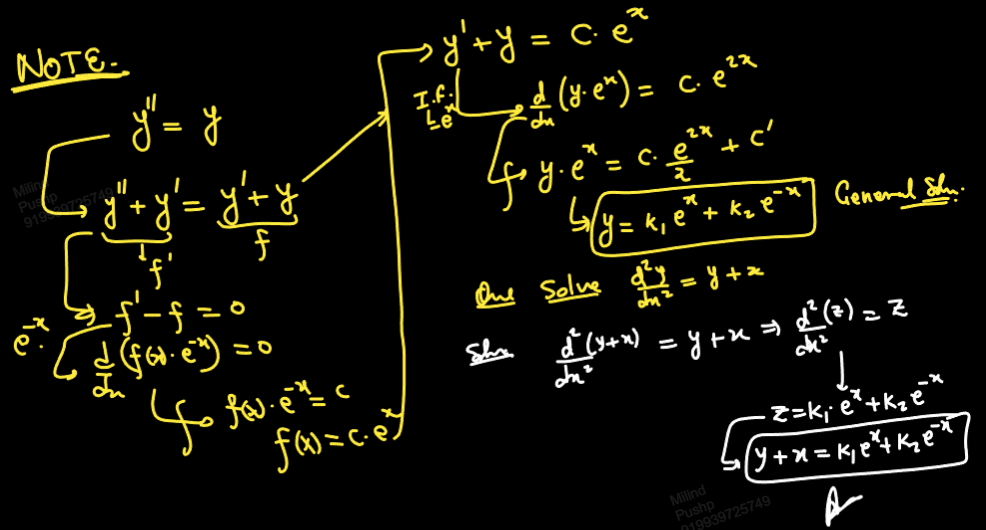 NOTE.
y'' = y
y'' + y' = y' + y
f' f
f' - f = 0
e^{-x}.
d/dx (f(x)·e^{-x}) = 0
∫ f(x)·e^{-x} = c
f(x) = c·e^x
y' + y = c·e^x
I.f. e^x
d/dx (y·e^x) = c·e^{2x}
∫ y·e^x = c·e^{2x}/2 + c'
y = k₁e^x + k₂e^{-x} General Soln.
Que Solve d²y/dx² = y + x
Soln d²(y+x)/dx² = y + x ⇒ d²(z)/dx² = z
z = k₁·e^x + k₂e^{-x}
y + x = k₁e^x + k₂e^{-x}
Milind
Pushp
919939725749
Milind
Pushp
919939725749